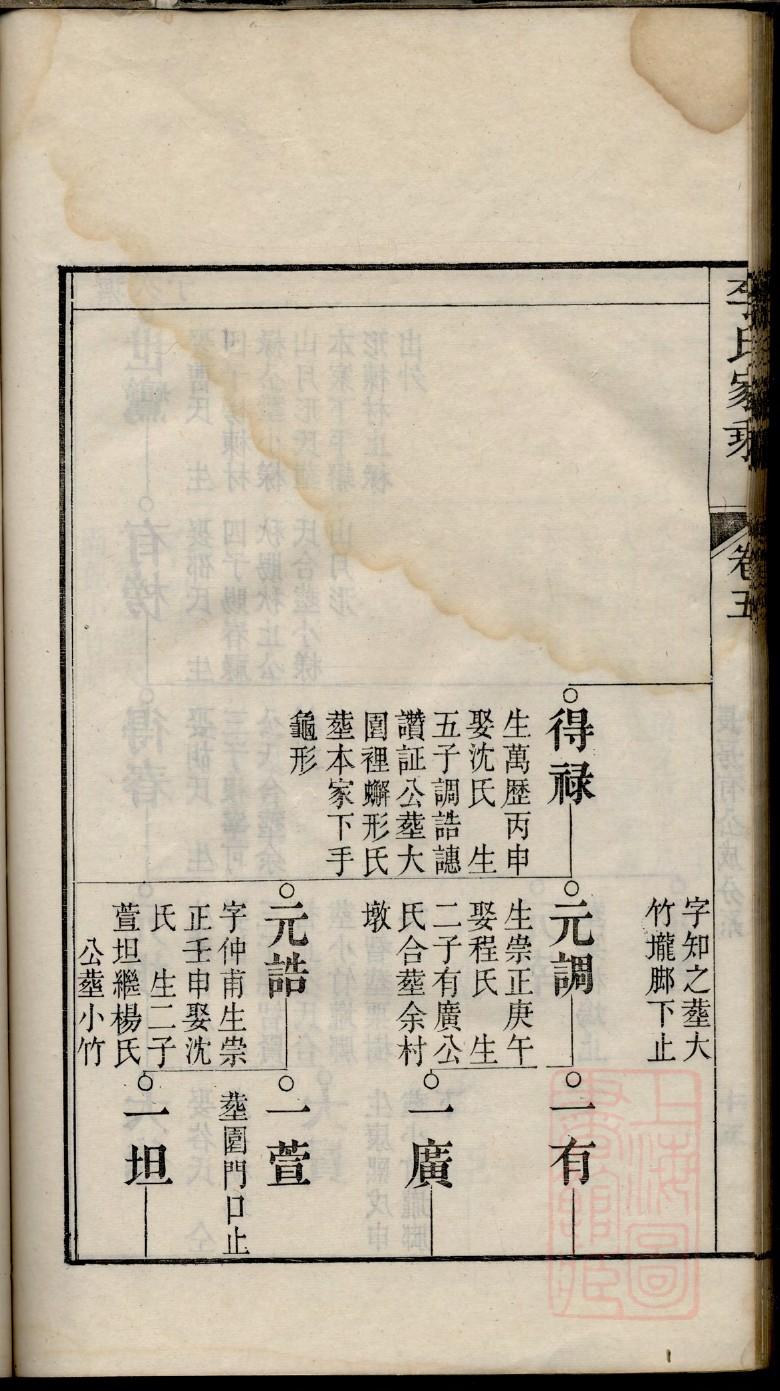 李氏家乘
卷五
字知之塟大
竹壠脚下止
得祿
生萬歷丙申
娶沈氏 生
五子調誥譓
讚証公塟大
園裡蠏形氏
塟本家下手
龜形
元調
生崇正庚午
娶程氏 生
二子有廣公
氏合塟余村
墩
元誥
字仲甫生崇
正壬申娶沈
氏 生二子
萱坦繼楊氏
公塟小竹
一有
一廣
一萱
塟園門口止
一坦
上海圖
書館藏